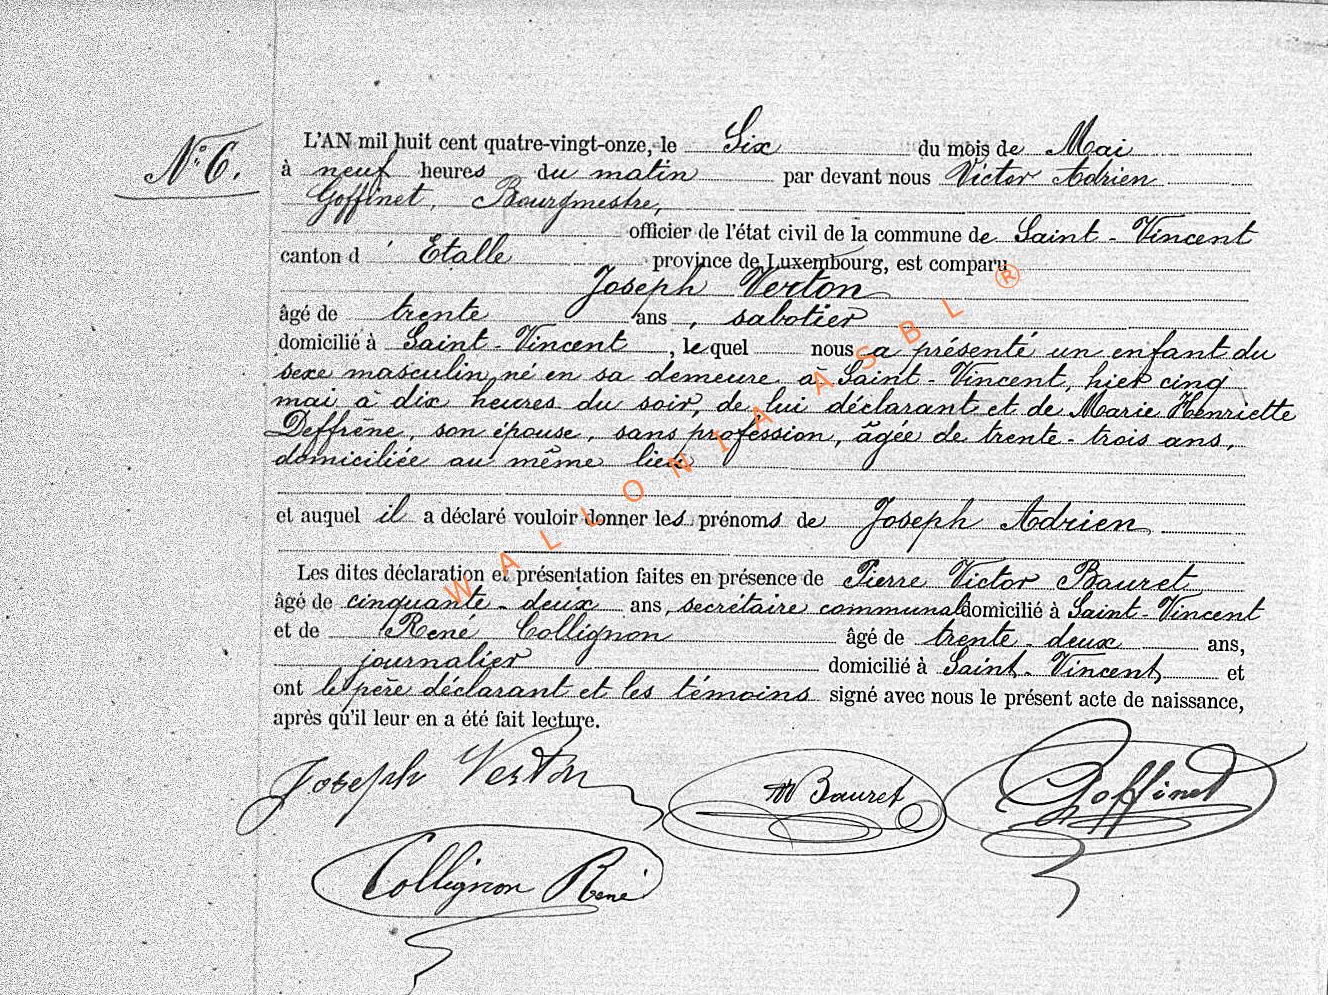 N° 6.
L'AN mil huit cent quatre-vingt-onze, le Six du mois de Mai
à neuf heures du matin par devant nous Victor Adrien
Goffinet, Bourgmestre,
officier de l'état civil de la commune de Saint-Vincent
canton d'Etalle province de Luxembourg, est comparu
Joseph Verton
âgé de trente ans, sabotier
domicilié à Saint-Vincent, lequel nous a présenté un enfant du
sexe masculin, né en sa demeure à Saint-Vincent, hier cinq
mai à dix heures du soir, de lui déclarant et de Marie Henriette
Deffrène, son épouse, sans profession, âgée de trente-trois ans,
domiciliée au même lieu
et auquel il a déclaré vouloir donner les prénoms de Joseph Adrien
Les dites déclaration et présentation faites en présence de Pierre Victor Bauret
âgé de cinquante-deux ans, secrétaire communal domicilié à Saint-Vincent
et de René Collignon âgé de trente-deux ans,
journalier domicilié à Saint-Vincent et
ont le père déclarant et les témoins signé avec nous le présent acte de naissance,
après qu'il leur en a été fait lecture.
Joseph Verton Bauret Goffinet
Collignon René
WALLONIA ASBL ®